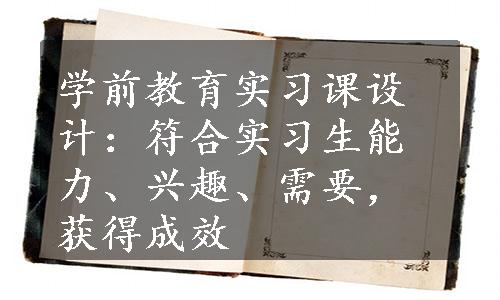 学前教育实习课设
计：符合实习生能
力、兴趣、需要，
获得成效